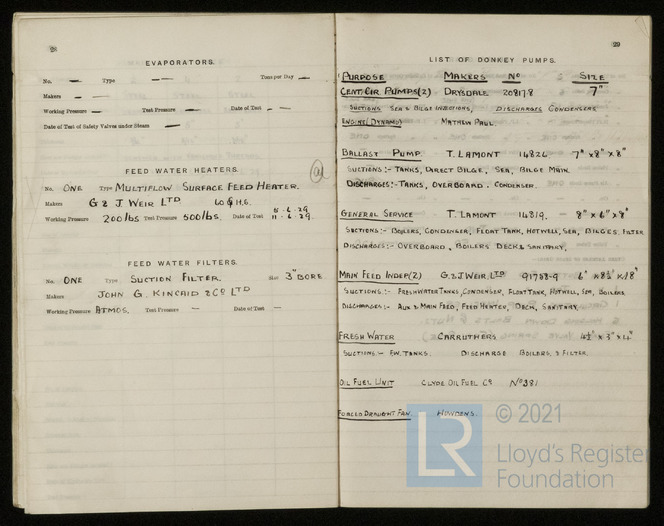 28
EVAPORATORS.
No. — Type — Tons per Day —
Makers —
Working Pressure — Test Pressure — Date of Test —
Date of Test of Safety Valves under Steam —
FEED WATER HEATERS.
No. ONE Type MULTIFLOW SURFACE FEED HEATER.
Makers G & J WEIR LTD
Working Pressure 200 lbs Test Pressure 500 lbs. Date of Test 11-6-29.
FEED WATER FILTERS.
No. ONE Type SUCTION FILTER. Size 3" BORE
Makers JOHN G. KINCAID & CO LTD
Working Pressure ATMOS. Test Pressure — Date of Test —
29
LIST OF DONKEY PUMPS.
PURPOSE MAKERS No SIZE
CENT. CIR. PUMPS (2) DRYSDALE 20817.8 7"
SUCTIONS SEA & BILGE INJECTIONS, DISCHARGES CONDENSERS
ENGINE (DYNAMO) MATHEW PAUL.
BALLAST PUMP. T. LAMONT 14822 7" x 8" x 8"
SUCTIONS:- TANKS, DIRECT BILGE, SEA, BILGE MAIN.
DISCHARGES:- TANKS, OVERBOARD. CONDENSER.
GENERAL SERVICE T. LAMONT 14819. 8" x 6" x 8"
SUCTIONS:- BOILERS, CONDENSER, FLOAT TANK, HOTWELL, SEA, BILGES. FILTER
DISCHARGES:- OVERBOARD, BOILERS DECK & SANITARY,
MAIN FEED INDEP (2) G. & J WEIR. LTD 91788-9 6" x 8½" x 18"
SUCTIONS:- FRESHWATER TANKS, CONDENSER, FLOAT TANK, HOTWELL, SEA, BOILERS
DISCHARGES:- AUX & MAIN FEED, FEED HEATER, DECK, SANITARY.
FRESH WATER CARRUTHERS 4½" x 3" x 4"
SUCTIONS:- F.W. TANKS. DISCHARGE BOILERS & FILTER.
OIL FUEL UNIT CLYDE OIL FUEL Co No 381
FORCED DRAUGHT FAN. HOWDENS.
LR © 2021
Lloyd's Register
Foundation